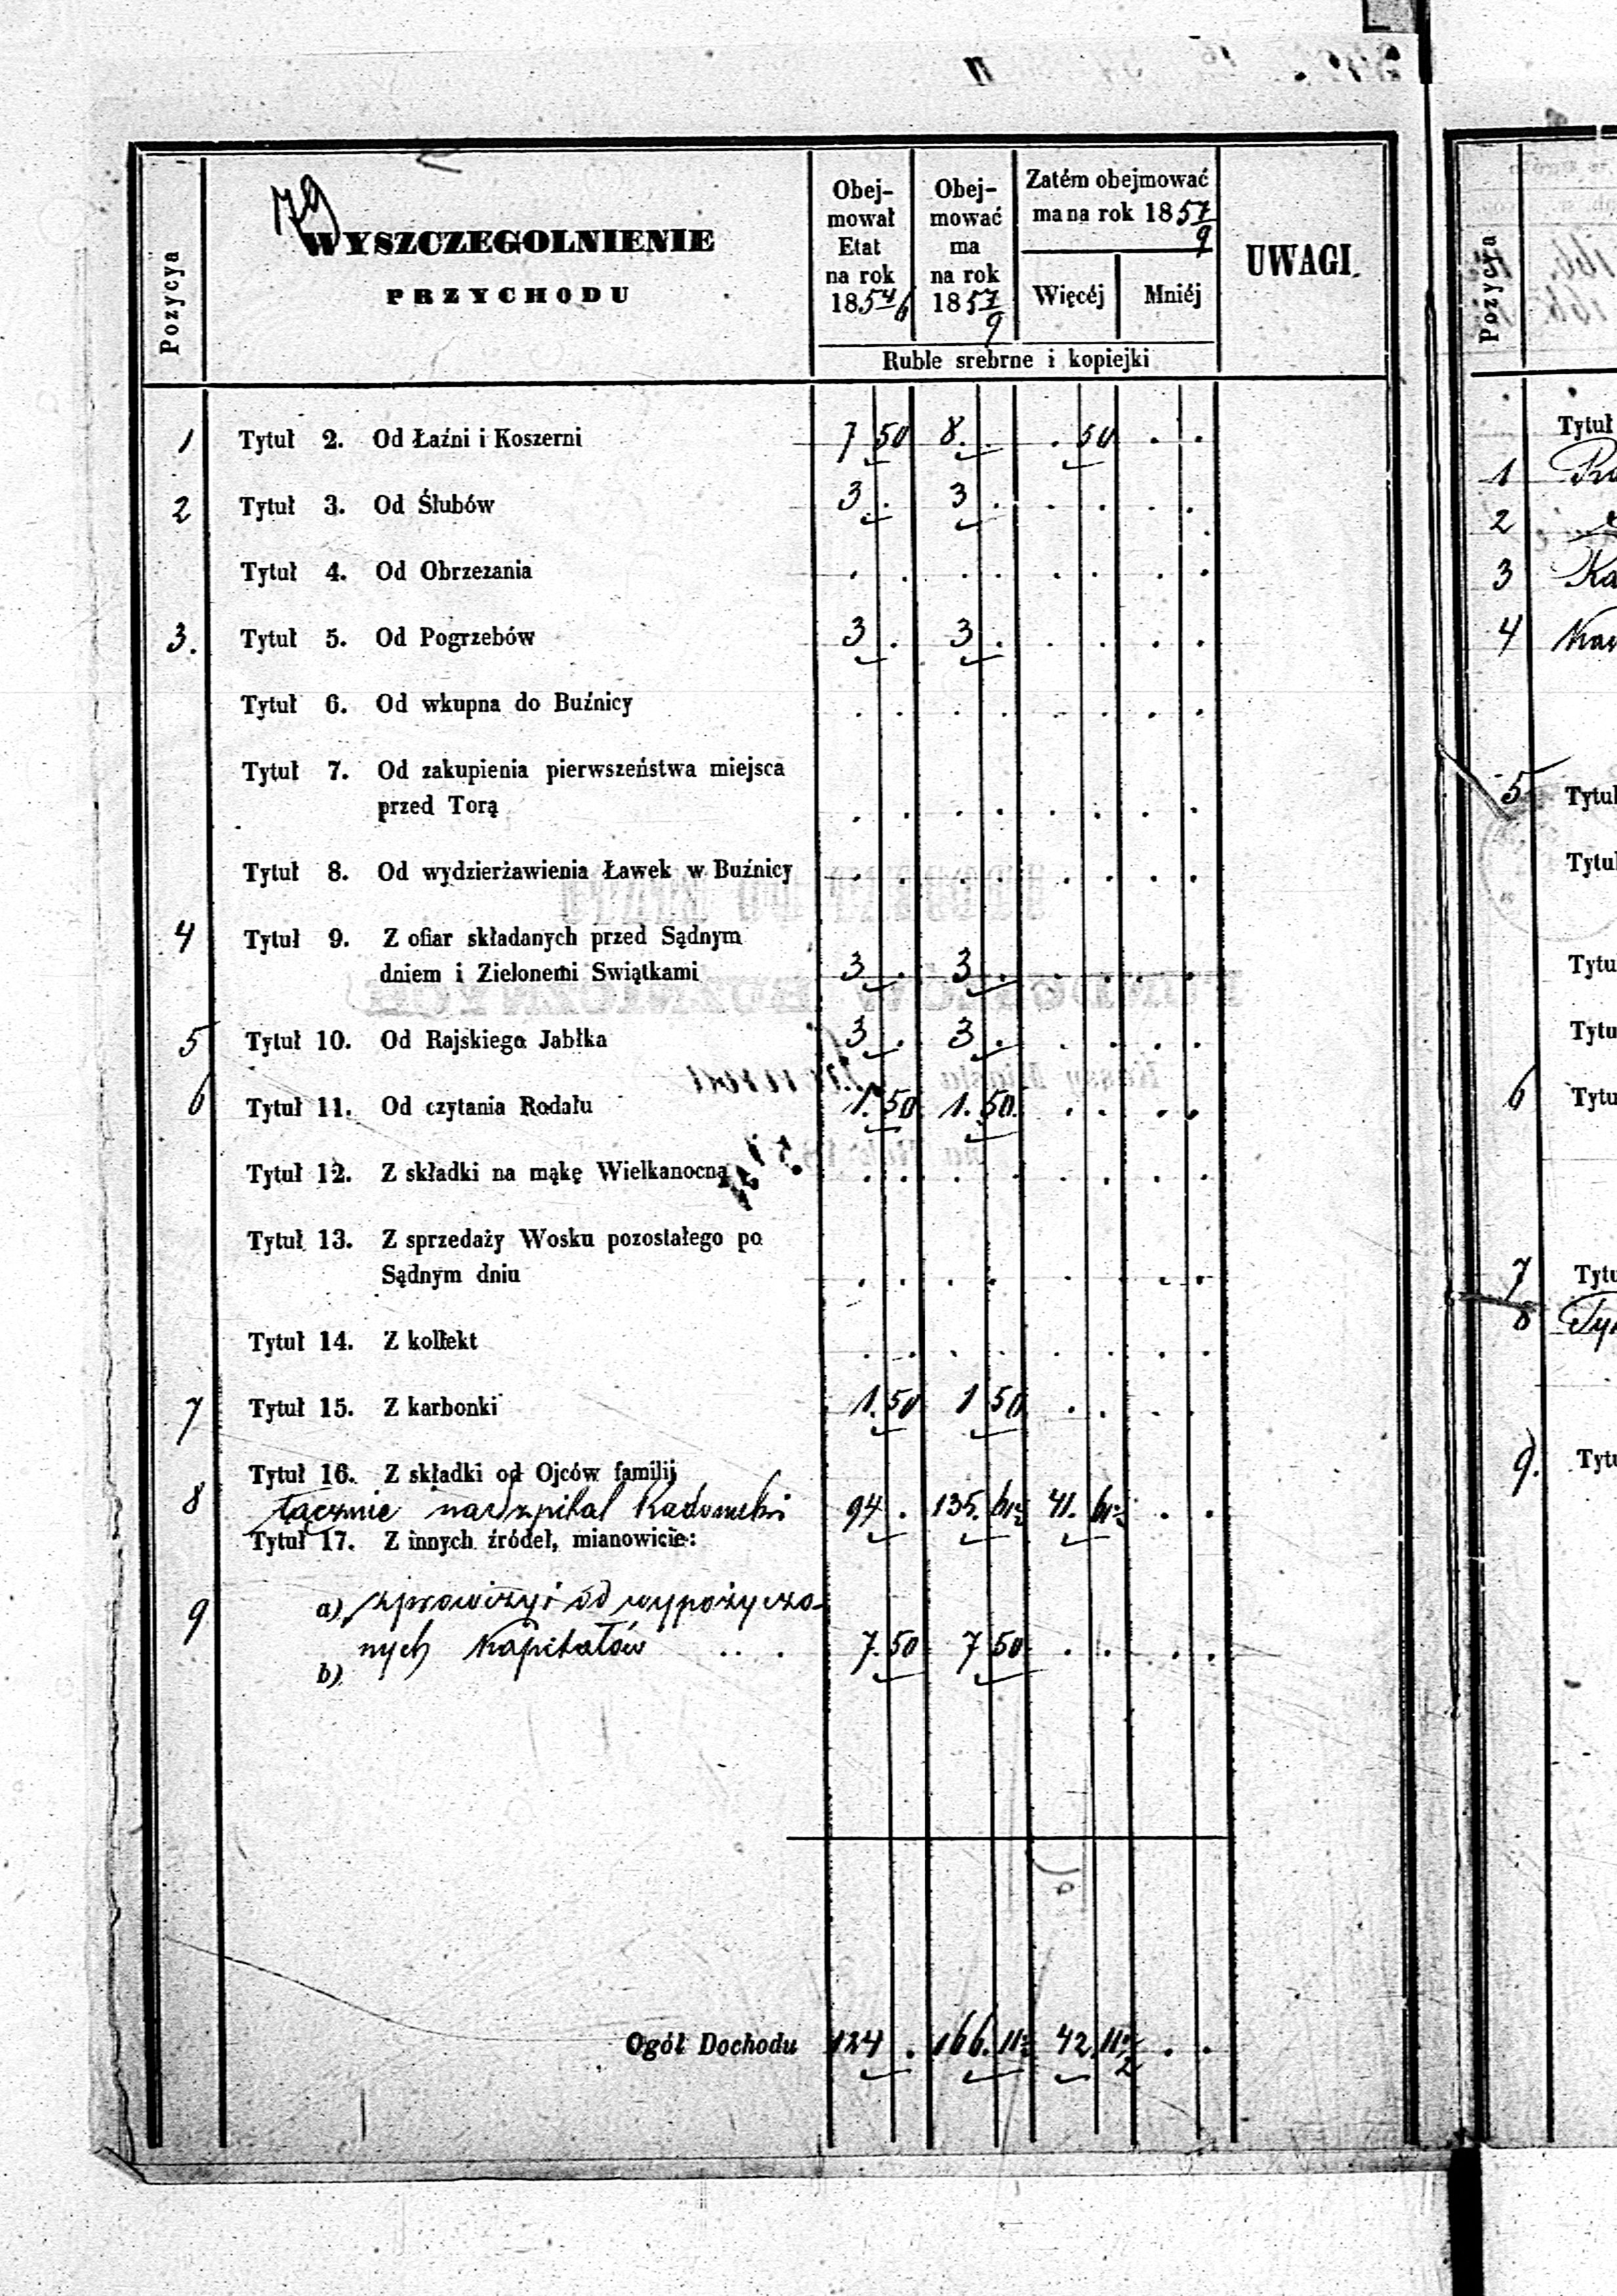 79
WYSZCZEGOLNIENIE
PRZYCHODU
Pozycya
Obej-
mował
Etat
na rok
1854/6
Obej-
mować
ma
na rok
1857/9
Zatém obejmować
ma na rok 1857/9
Więcéj Mniéj
Ruble srebrne i kopiejki
UWAGI.
1 Tytuł 2. Od Łaźni i Koszerni 7 50 8. . . 50 . .
2 Tytuł 3. Od Ślubów 3 . 3 . . . . .
Tytuł 4. Od Obrzezania . . . . . . . .
3. Tytuł 5. Od Pogrzebów 3 . 3 . . . . .
Tytuł 6. Od wkupna do Buźnicy . . . . . . . .
Tytuł 7. Od zakupienia pierwszeństwa miejsca
przed Torą . . . . . . . .
Tytuł 8. Od wydzierżawienia Ławek w Buźnicy . . . . . . . .
4 Tytuł 9. Z ofiar składanych przed Sądnym
dniem i Zielonemi Swiątkami 3 . 3 . . . . .
5 Tytuł 10. Od Rajskiego Jabłka 3 . 3 . . . . .
6 Tytuł 11. Od czytania Rodału 1. 50 1. 50. . . . .
Tytuł 12. Z składki na mąkę Wielkanocną . . . . . . . .
Tytuł 13. Z sprzedaży Wosku pozostałego po
Sądnym dniu . . . . . . . .
Tytuł 14. Z kollekt . . . . . . . .
7 Tytuł 15. Z karbonki 1. 50 1 50 . . . .
Tytuł 16. Z składki od Ojców familij
8 łącznie na Szpital Radomski 94 . 135. 61½ 41. 61½ . .
Tytuł 17. Z innych źródeł, mianowicie:
9 a) z prowizyi od wypożyczo-
nych Kapitałów . . . 7. 50 7 50 . . . .
b)
Ogół Dochodu 124 . 166. 11½ 42. 11½ . .
Pozycya
Tytuł
1
2
3
4
5 Tytuł
Tytuł
Tytu
Tytu
6 Tytu
7 Tytu
8
9. Tytu